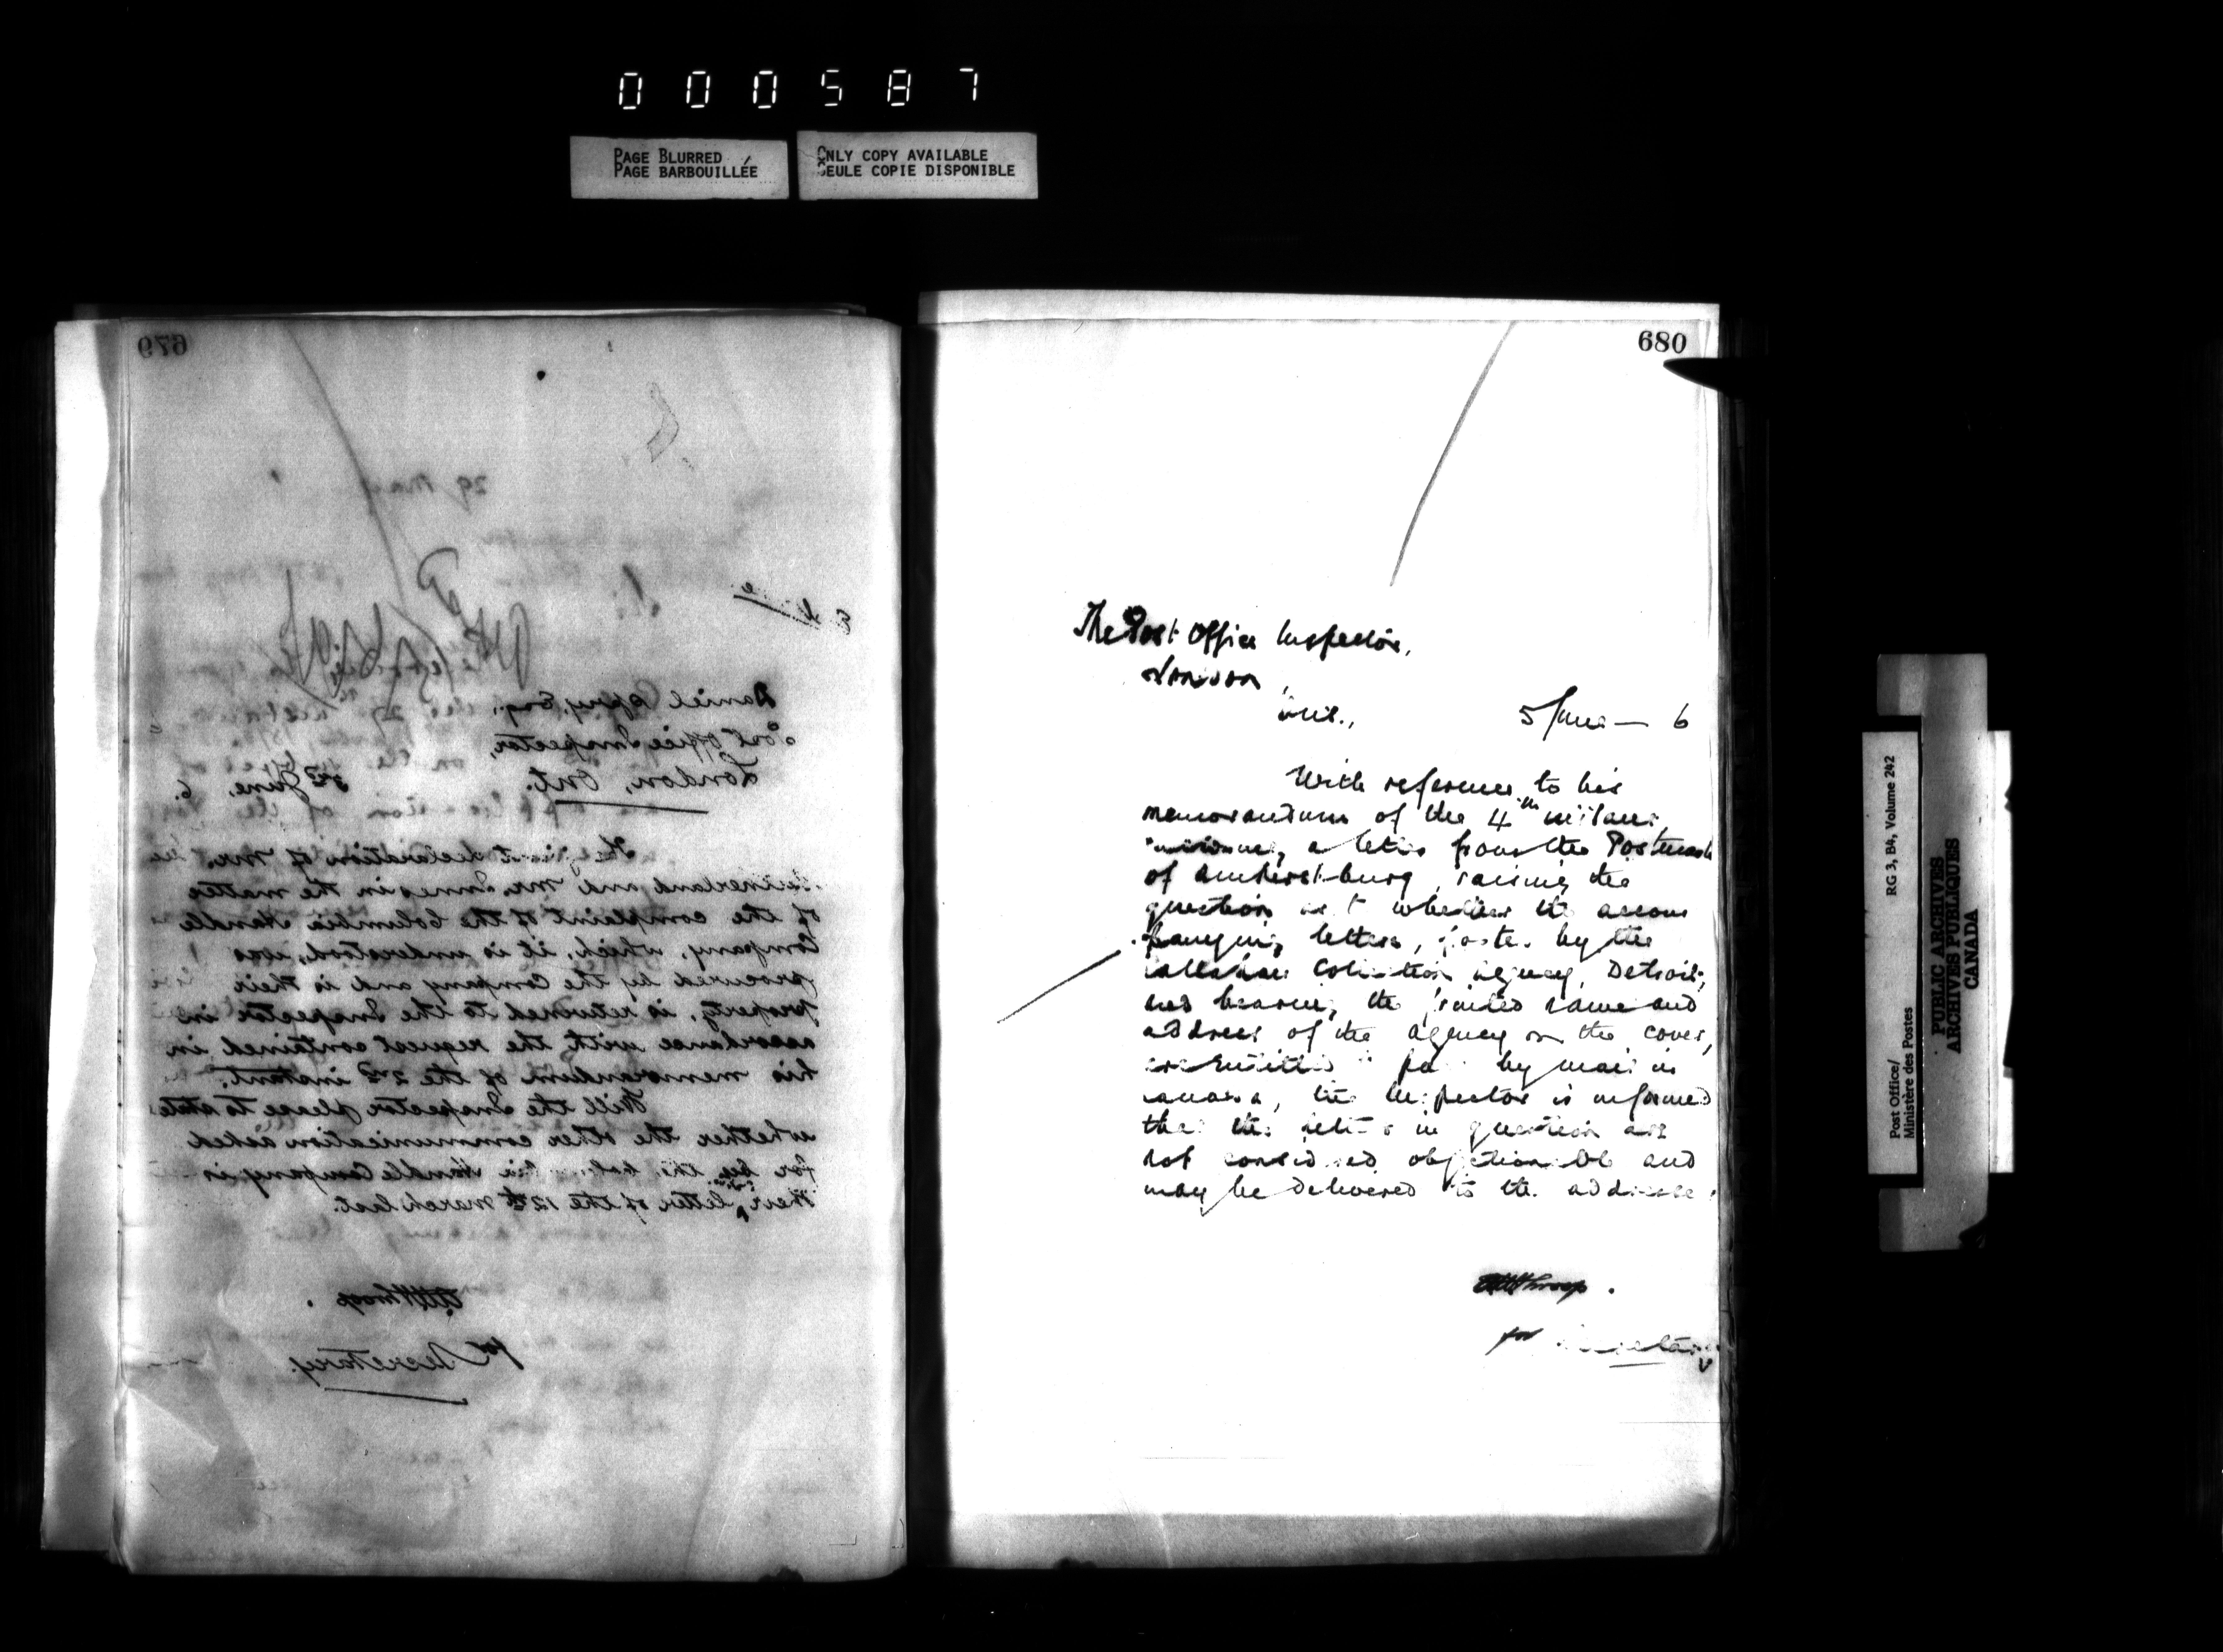 000587
PAGE BLURRED
PAGE BARBOUILLÉE
ONLY COPY AVAILABLE
SEULE COPIE DISPONIBLE
679
29 May
Daniel Spry, Esq.,
Post Office Inspector,
London, Ont.
3rd June, 6.
The joint declaration of Mr.
and Mr. Innes in the matter
of the complaint of the Columbia Handle
Company, which, it is understood, was
procured by the Company and is their
property, is returned to the Inspector in
accordance with the request contained in
his memorandum of the 2nd instant.
Will the Inspector please to state
whether the other communication asked
for by the Columbia Handle Company in
their letter of the 12th March last.
for Secretary.
680
The Post Office Inspector,
London,
Ont., 5 June — 6
With reference to his
memorandum of the 4th instant,
a letter from the Postmaster
of Amherstburg, raising the
question as to whether the accom
panying letters, posted by the
Collection Agency, Detroit,
and bearing the printed name and
address of the agency on the cover,
are permitted to pass by mail in
Canada, the Inspector is informed
that the letters in question are
not considered objectionable and
may be delivered to the addressee.
for Secretary
Post Office/
Ministère des Postes
RG 3, B4, Volume 242
PUBLIC ARCHIVES
ARCHIVES PUBLIQUES
CANADA